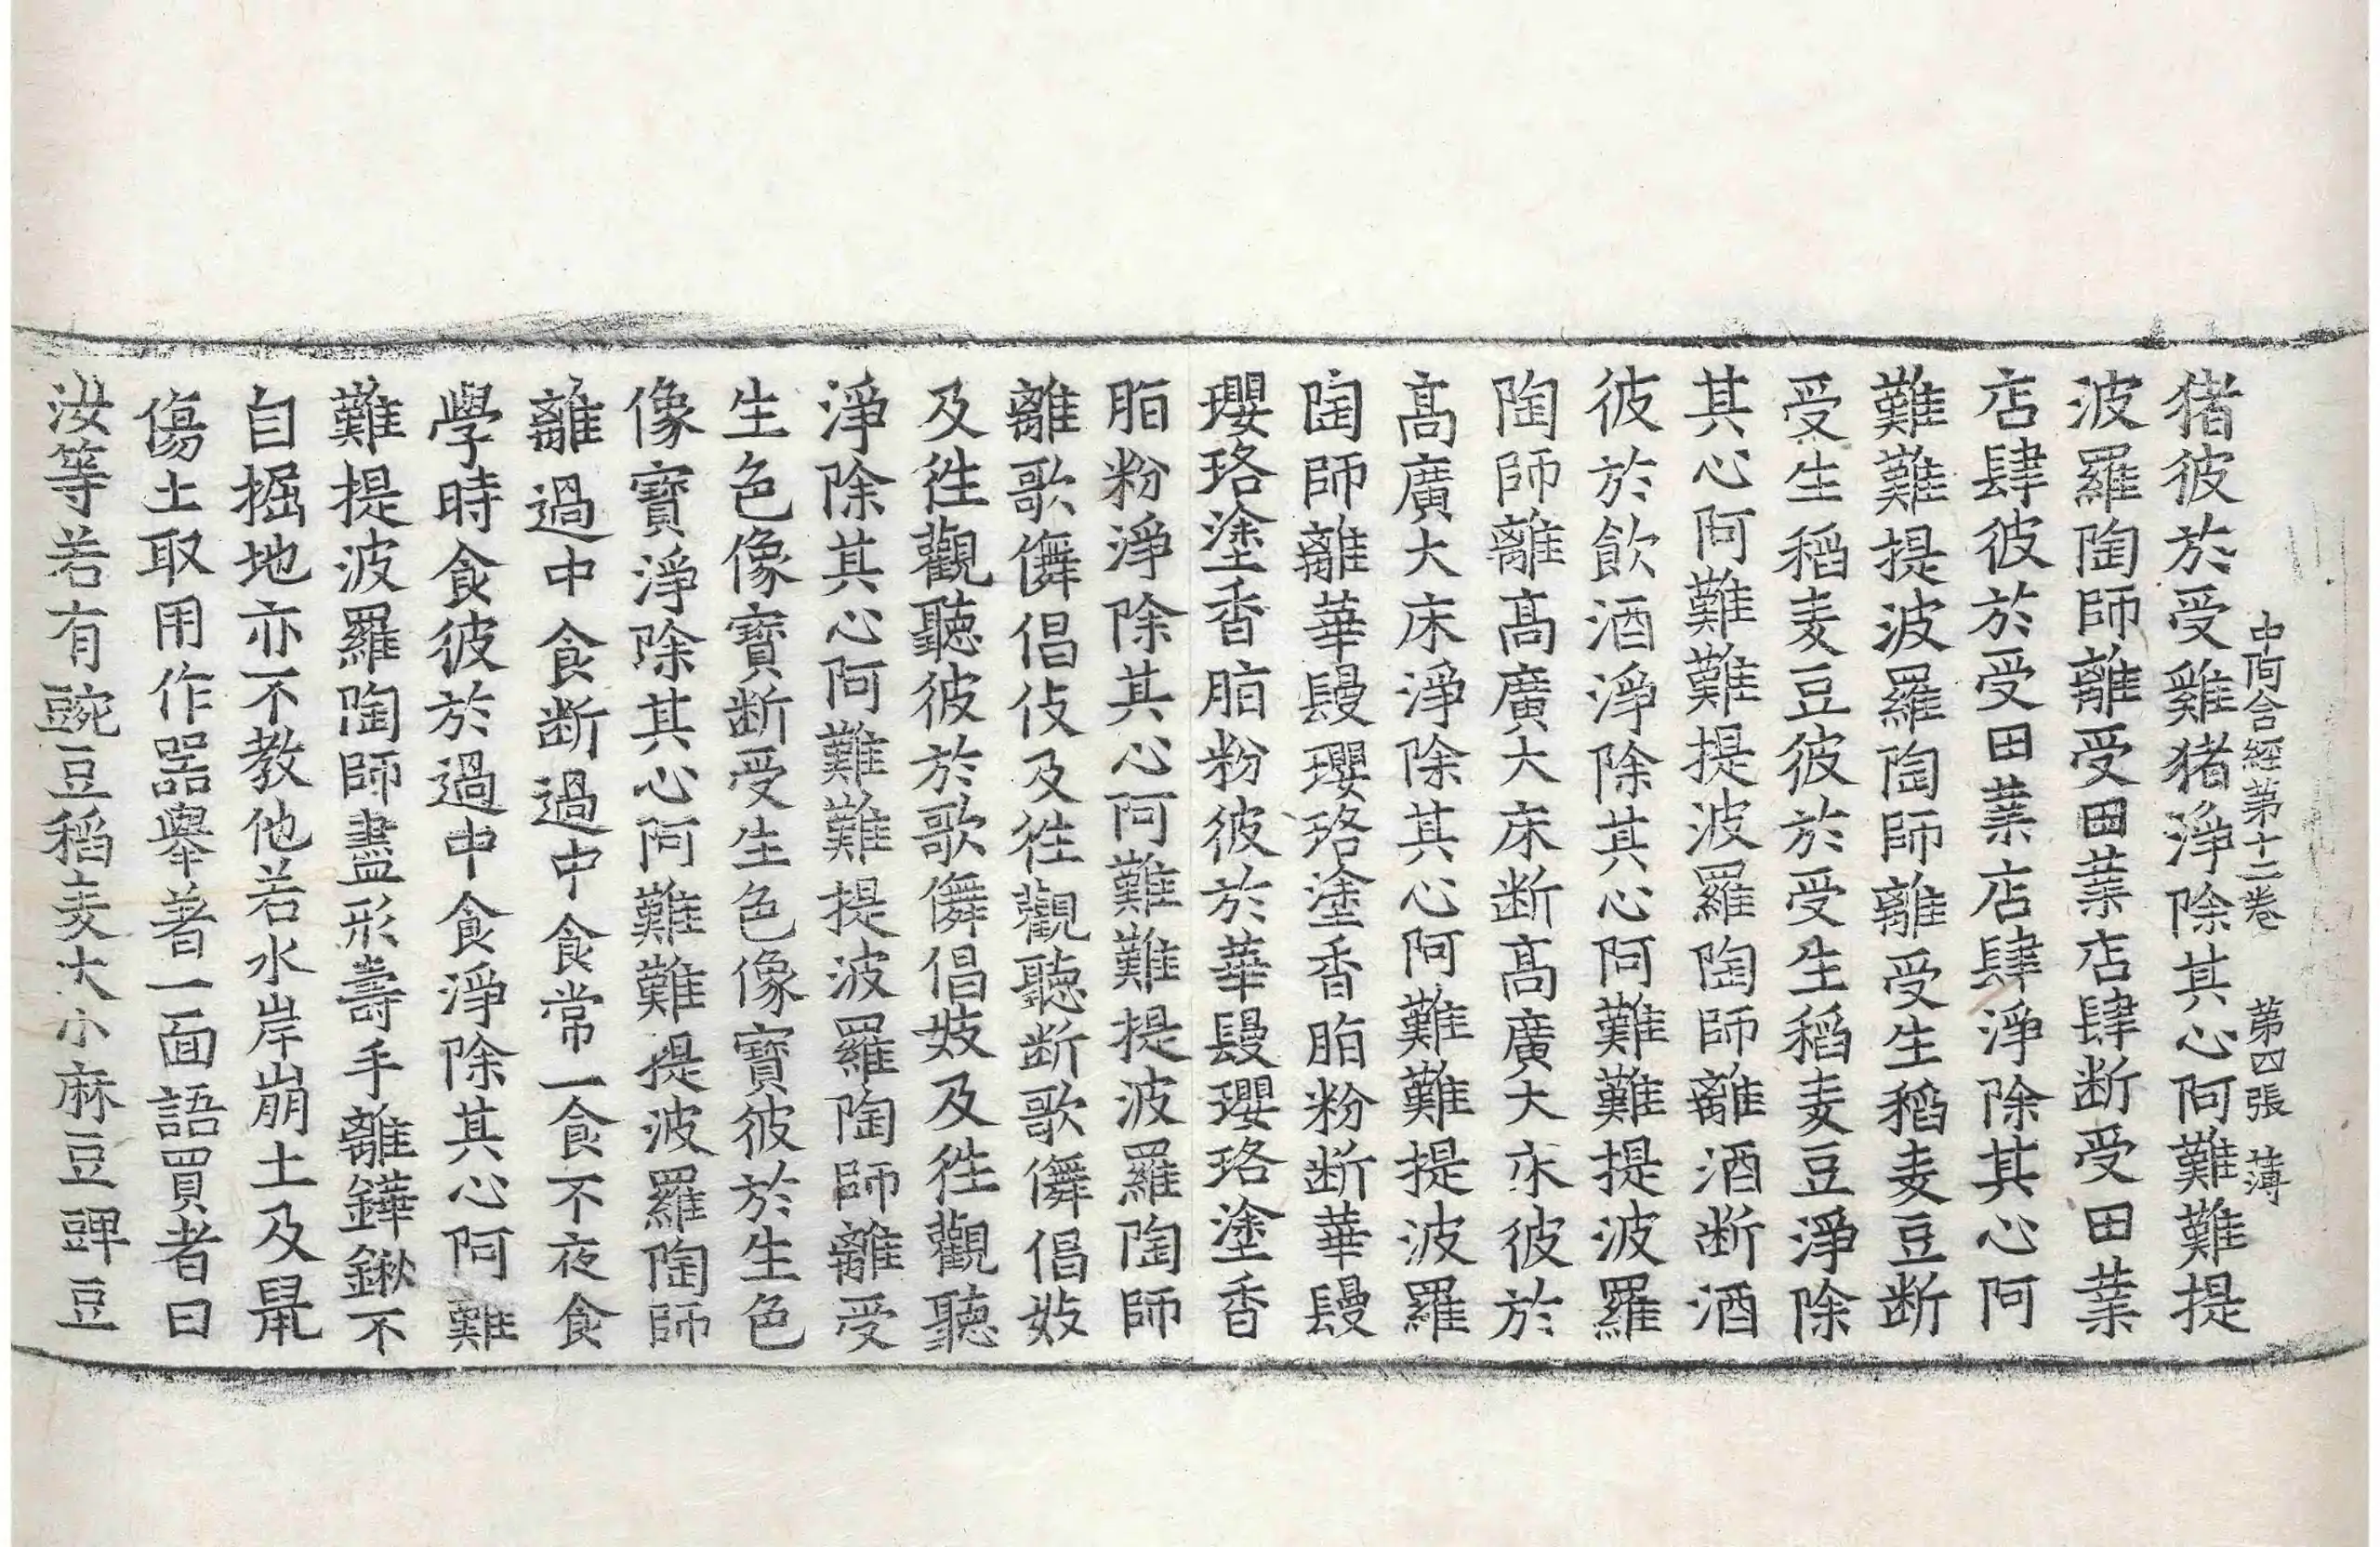 中阿含經第十二卷　第四張　薄
猪彼於受雞猪淨除其心阿難難提
波羅陶師離受田業店肆断受田業
店肆彼於受田業店肆淨除其心阿
難難提波羅陶師離受生稻麦豆断
受生稻麦豆彼於受生稻麦豆淨除
其心阿難難提波羅陶師離酒断酒
彼於飲酒淨除其心阿難難提波羅
陶師離髙廣大床断髙廣大床彼於
髙廣大床淨除其心阿難難提波羅
陶師離華鬘瓔珞塗香脂粉断華鬘
瓔珞塗香脂粉彼於華鬘瓔珞塗香
脂粉淨除其心阿難難提波羅陶師
離歌儛倡伎及徃觀聽断歌儛倡妓
及徃觀聽彼於歌儛倡妓及徃觀聽
淨除其心阿難難提波羅陶師離受
生色像寶断受生色像寶彼於生色
像寶淨除其心阿難難提波羅陶師
離過中食断過中食常一食不夜食
學時食彼於過中食淨除其心阿難
難提波羅陶師盡形壽手離鏵鍬不
自掘地亦不教他若水岸崩土及鼠
傷土取用作器舉著一面語買者曰
汝等若有豌豆稻麦大小麻豆豍豆